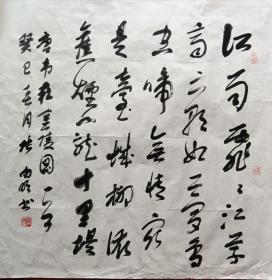 江雨霏〻江草
齊六朝如夢鳥
空啼無情最
是臺城柳依
舊煙籠十里堤
唐韋莊金陵圖一首
癸巳春月書